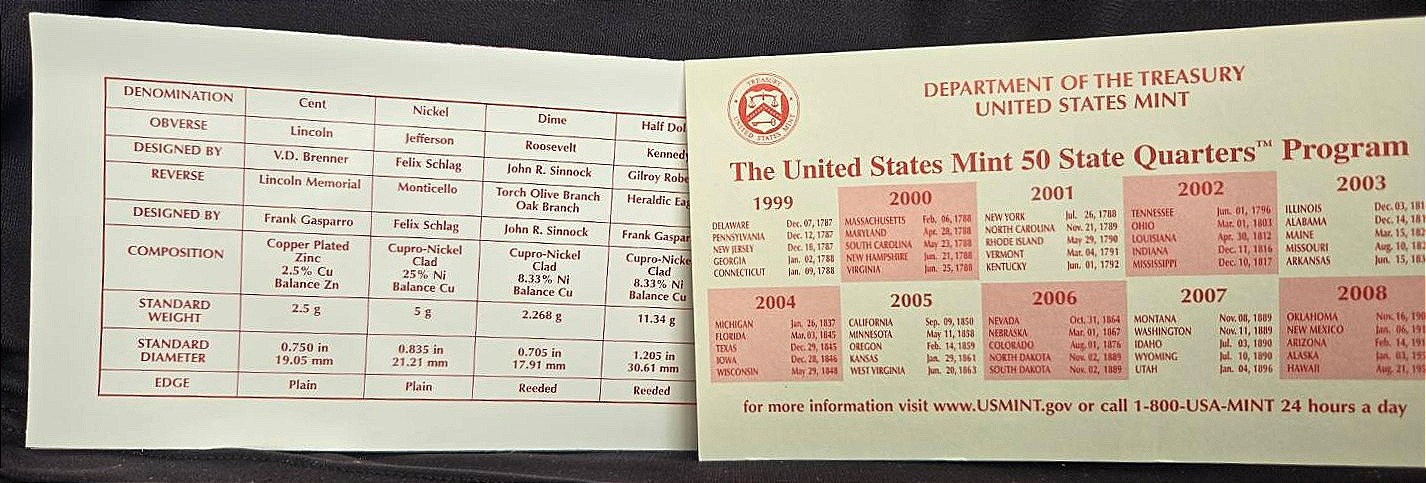 DENOMINATION Cent Nickel Dime Half Dol
OBVERSE Lincoln Jefferson Roosevelt Kennedy
DESIGNED BY V.D. Brenner Felix Schlag John R. Sinnock Gilroy Robe
REVERSE Lincoln Memorial Monticello Torch Olive Branch Heraldic Eag
Oak Branch
DESIGNED BY Frank Gasparro Felix Schlag John R. Sinnock Frank Gaspar
COMPOSITION Copper Plated Cupro-Nickel Cupro-Nickel Cupro-Nicke
Zinc Clad Clad Clad
2.5% Cu 25% Ni 8.33% Ni 8.33% Ni
Balance Zn Balance Cu Balance Cu Balance Cu
STANDARD
WEIGHT 2.5 g 5 g 2.268 g 11.34 g
STANDARD 0.750 in 0.835 in 0.705 in 1.205 in
DIAMETER 19.05 mm 21.21 mm 17.91 mm 30.61 mm
EDGE Plain Plain Reeded Reeded
TREASURY
UNITED STATES MINT
DEPARTMENT OF THE TREASURY
UNITED STATES MINT
The United States Mint 50 State Quarters™ Program
1999
DELAWARE Dec. 07, 1787
PENNSYLVANIA Dec. 12, 1787
NEW JERSEY Dec. 18, 1787
GEORGIA Jan. 02, 1788
CONNECTICUT Jan. 09, 1788
2000
MASSACHUSETTS Feb. 06, 1788
MARYLAND Apr. 28, 1788
SOUTH CAROLINA May 23, 1788
NEW HAMPSHIRE Jun. 21, 1788
VIRGINIA Jun. 25, 1788
2001
NEW YORK Jul. 26, 1788
NORTH CAROLINA Nov. 21, 1789
RHODE ISLAND May 29, 1790
VERMONT Mar. 04, 1791
KENTUCKY Jun. 01, 1792
2002
TENNESSEE Jun. 01, 1796
OHIO Mar. 01, 1803
LOUISIANA Apr. 30, 1812
INDIANA Dec. 11, 1816
MISSISSIPPI Dec. 10, 1817
2003
ILLINOIS Dec. 03, 181
ALABAMA Dec. 14, 181
MAINE Mar. 15, 182
MISSOURI Aug. 10, 18
ARKANSAS Jun. 15, 183
2004
MICHIGAN Jan. 26, 1837
FLORIDA Mar. 03, 1845
TEXAS Dec. 29, 1845
IOWA Dec. 28, 1846
WISCONSIN May 29, 1848
2005
CALIFORNIA Sep. 09, 1850
MINNESOTA May 11, 1858
OREGON Feb. 14, 1859
KANSAS Jan. 29, 1861
WEST VIRGINIA Jun. 20, 1863
2006
NEVADA Oct. 31, 1864
NEBRASKA Mar. 01, 1867
COLORADO Aug. 01, 1876
NORTH DAKOTA Nov. 02, 1889
SOUTH DAKOTA Nov. 02, 1889
2007
MONTANA Nov. 08, 1889
WASHINGTON Nov. 11, 1889
IDAHO Jul. 03, 1890
WYOMING Jul. 10, 1890
UTAH Jan. 04, 1896
2008
OKLAHOMA Nov. 16, 190
NEW MEXICO Jan. 06, 191
ARIZONA Feb. 14, 191
ALASKA Jan. 03, 195
HAWAII Aug. 21, 195
for more information visit www.USMINT.gov or call 1-800-USA-MINT 24 hours a day